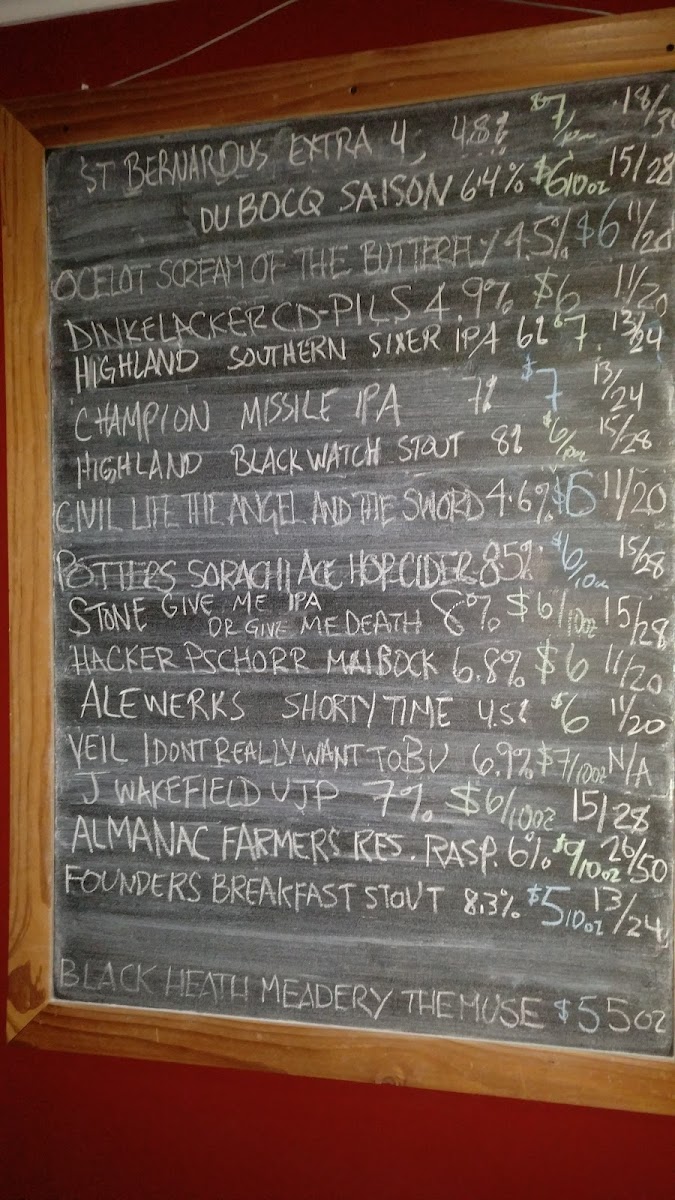 ST BERNARDUS EXTRA 4, 4.8% $7/10oz 18/
DU BOCQ SAISON 6.4% $6 10oz 15/28
OCELOT SCREAM OF THE BUTTERFLY 4.5% $6 11/20
DINKELACKER CD-PILS 4.9% $6 11/20
HIGHLAND SOUTHERN SIXER IPA 6% $7. 13/24
CHAMPION MISSILE IPA 7% $7 13/24
HIGHLAND BLACK WATCH STOUT 8% $6/10oz 15/28
CIVIL LIFE THE ANGEL AND THE SWORD 4.6% 11/20
POTTERS SORACHI ACE HOP CIDER 8.5% $6/10oz 15/28
STONE GIVE ME IPA OR GIVE ME DEATH 8% $6/10oz 15/28
HACKER PSCHORR MAIBOCK 6.8% $6 11/20
ALEWERKS SHORTY TIME 4.5% $6 11/20
VEIL I DONT REALLY WANT TO BU 6.9% $7/10oz N/A
J WAKEFIELD VJP 7% $6/10oz 15/28
ALMANAC FARMERS RES. RASP. 6% $9/10oz 26/50
FOUNDERS BREAKFAST STOUT 8.3% $5 10oz 13/24
BLACK HEATH MEADERY THE MUSE $5 5oz